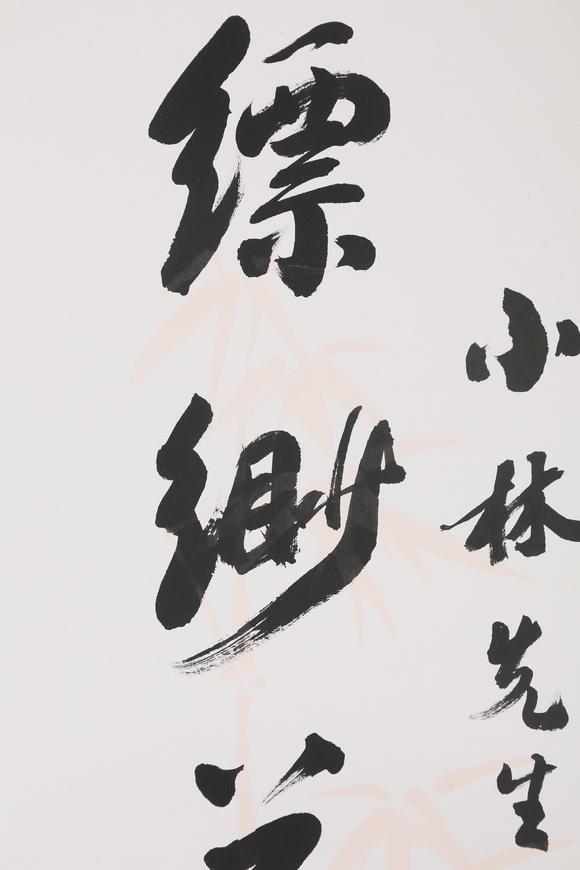 小林先生
缥缈